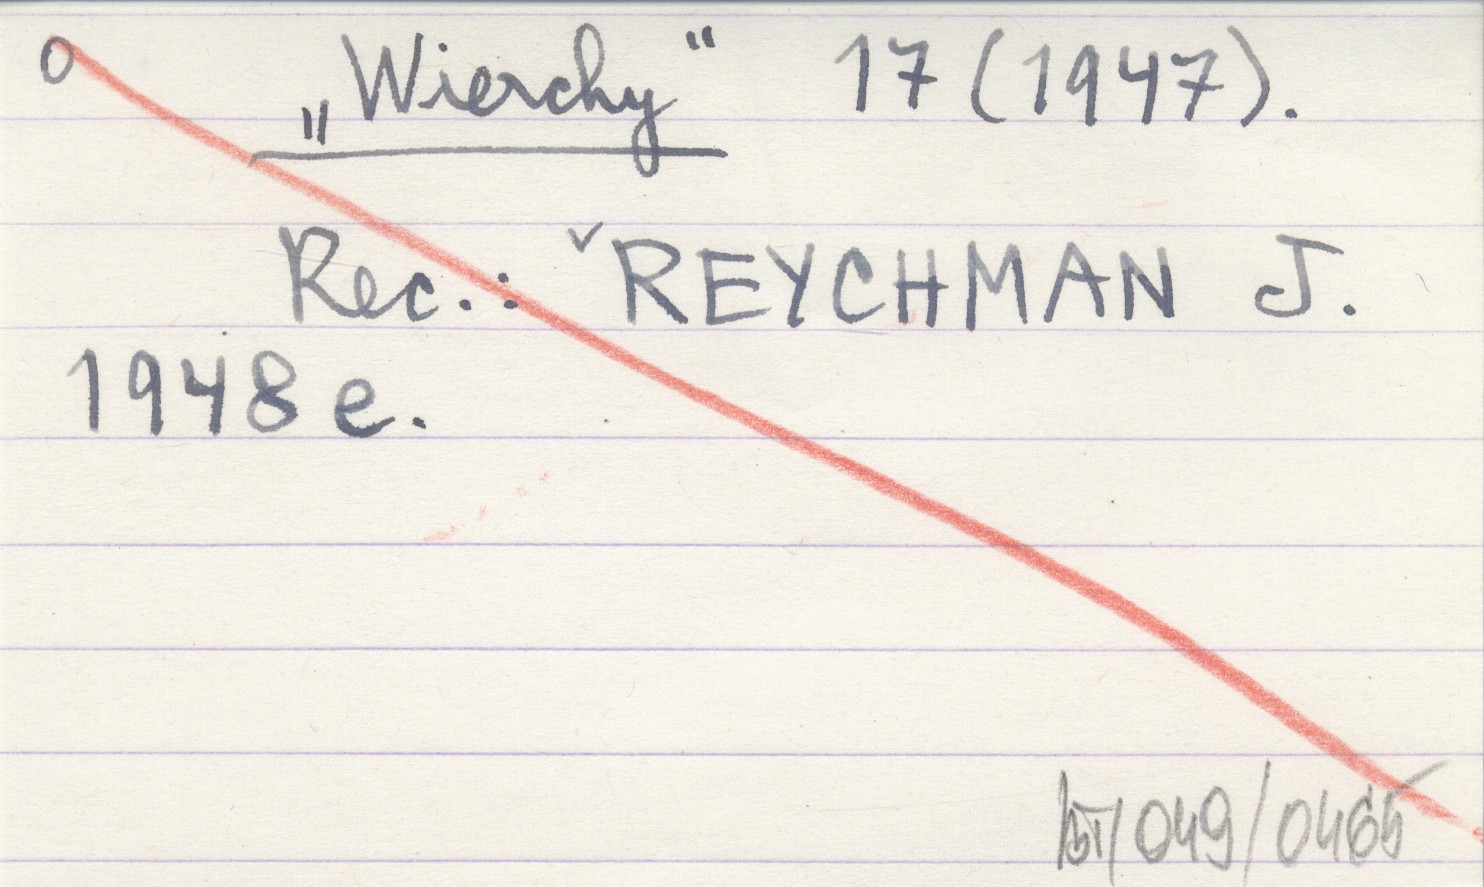 o „Wierchy“ 17 (1947).
Rec.: ˇREYCHMAN J.
1948 e.
049/0465